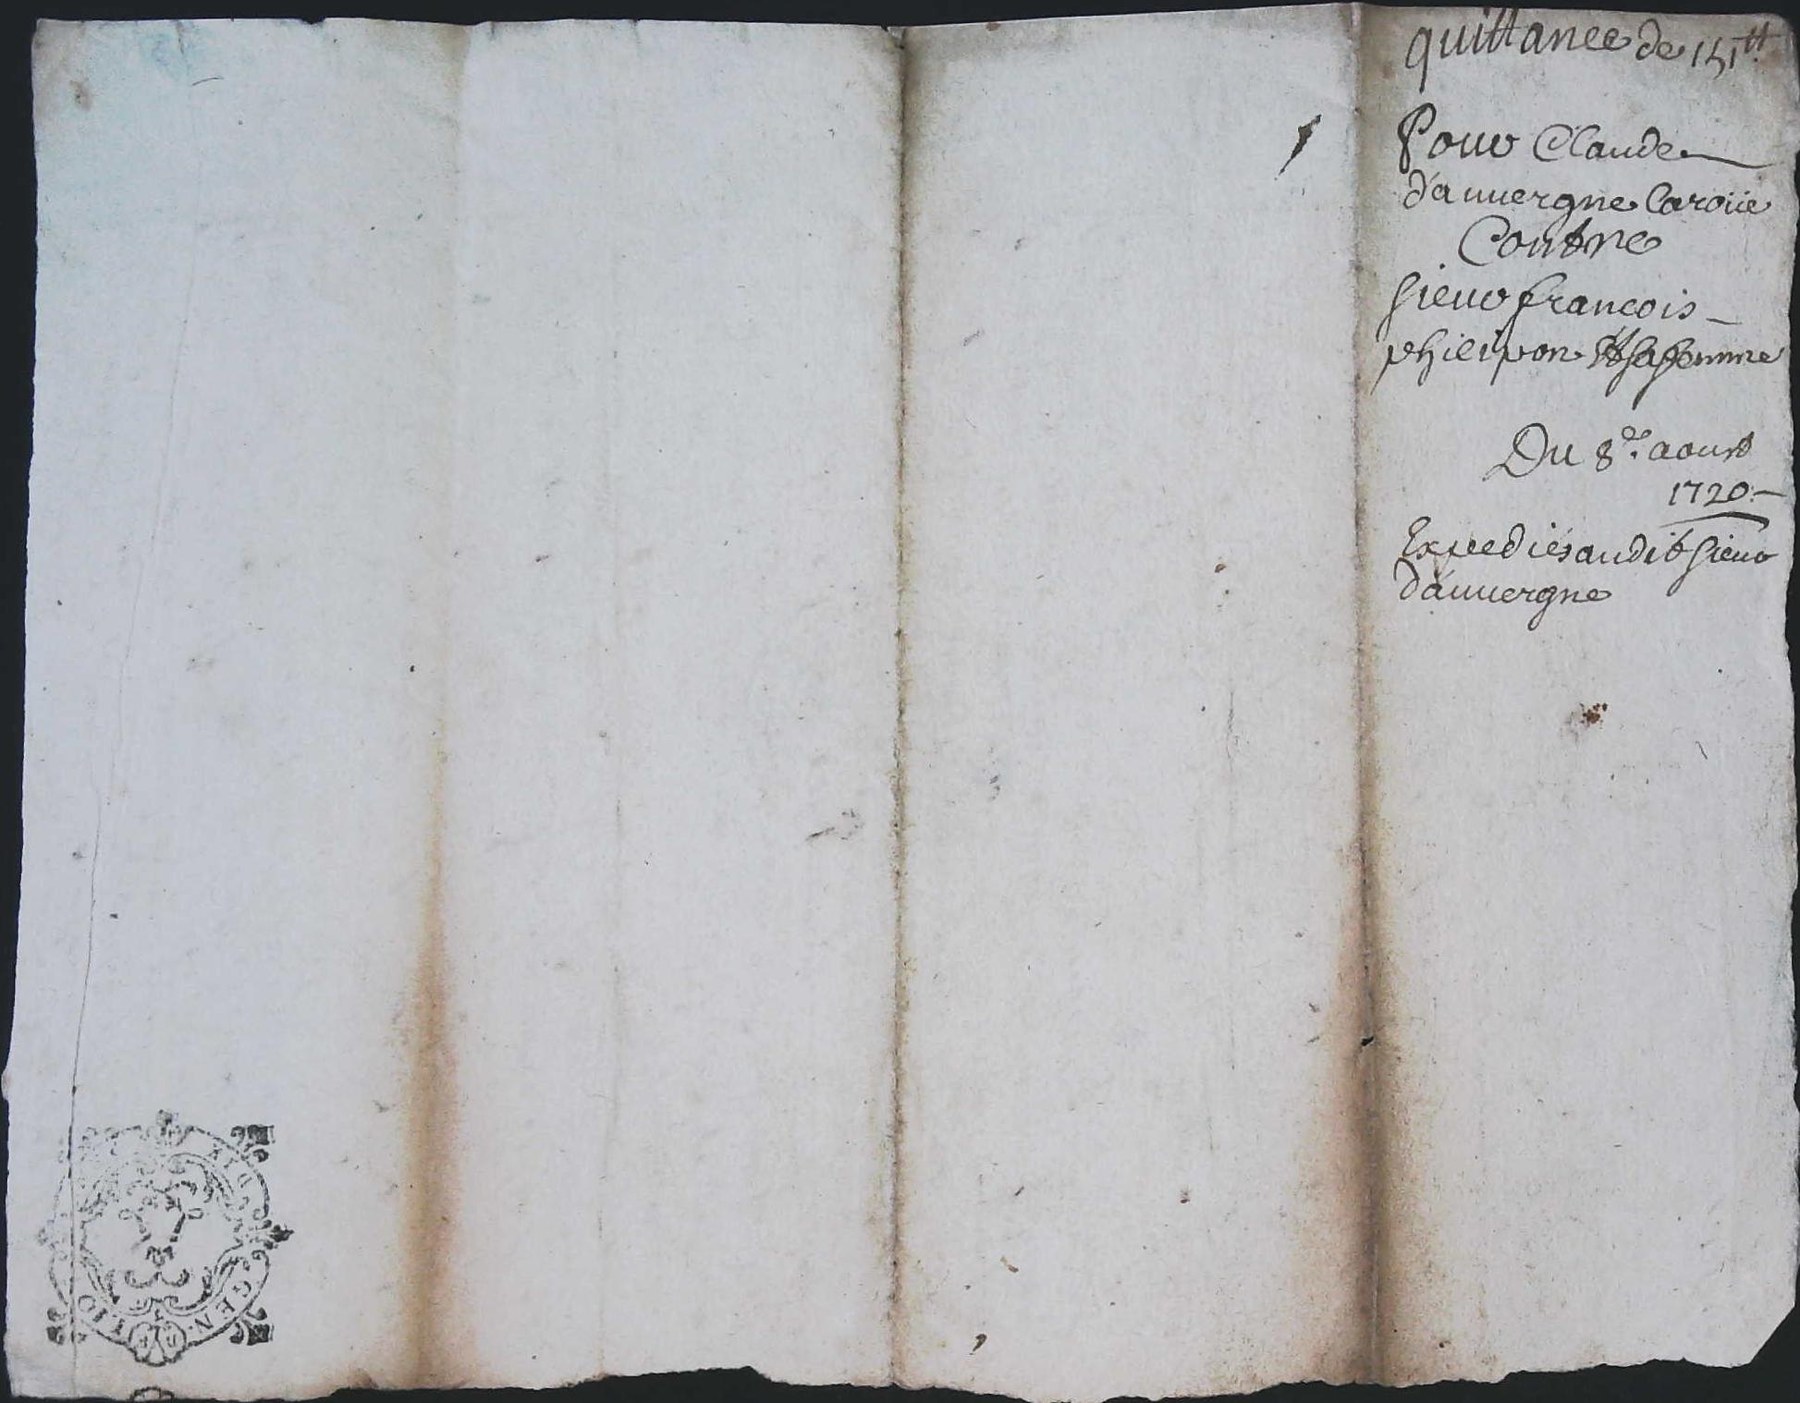 quittance de 151tt.
Pour Claude
d'auuergne Laroüe
Contre
sieur francois
philipon et sa femme
Du 8e. aoust
1720
Expediés audit sieur
d'auuergne
GEN.